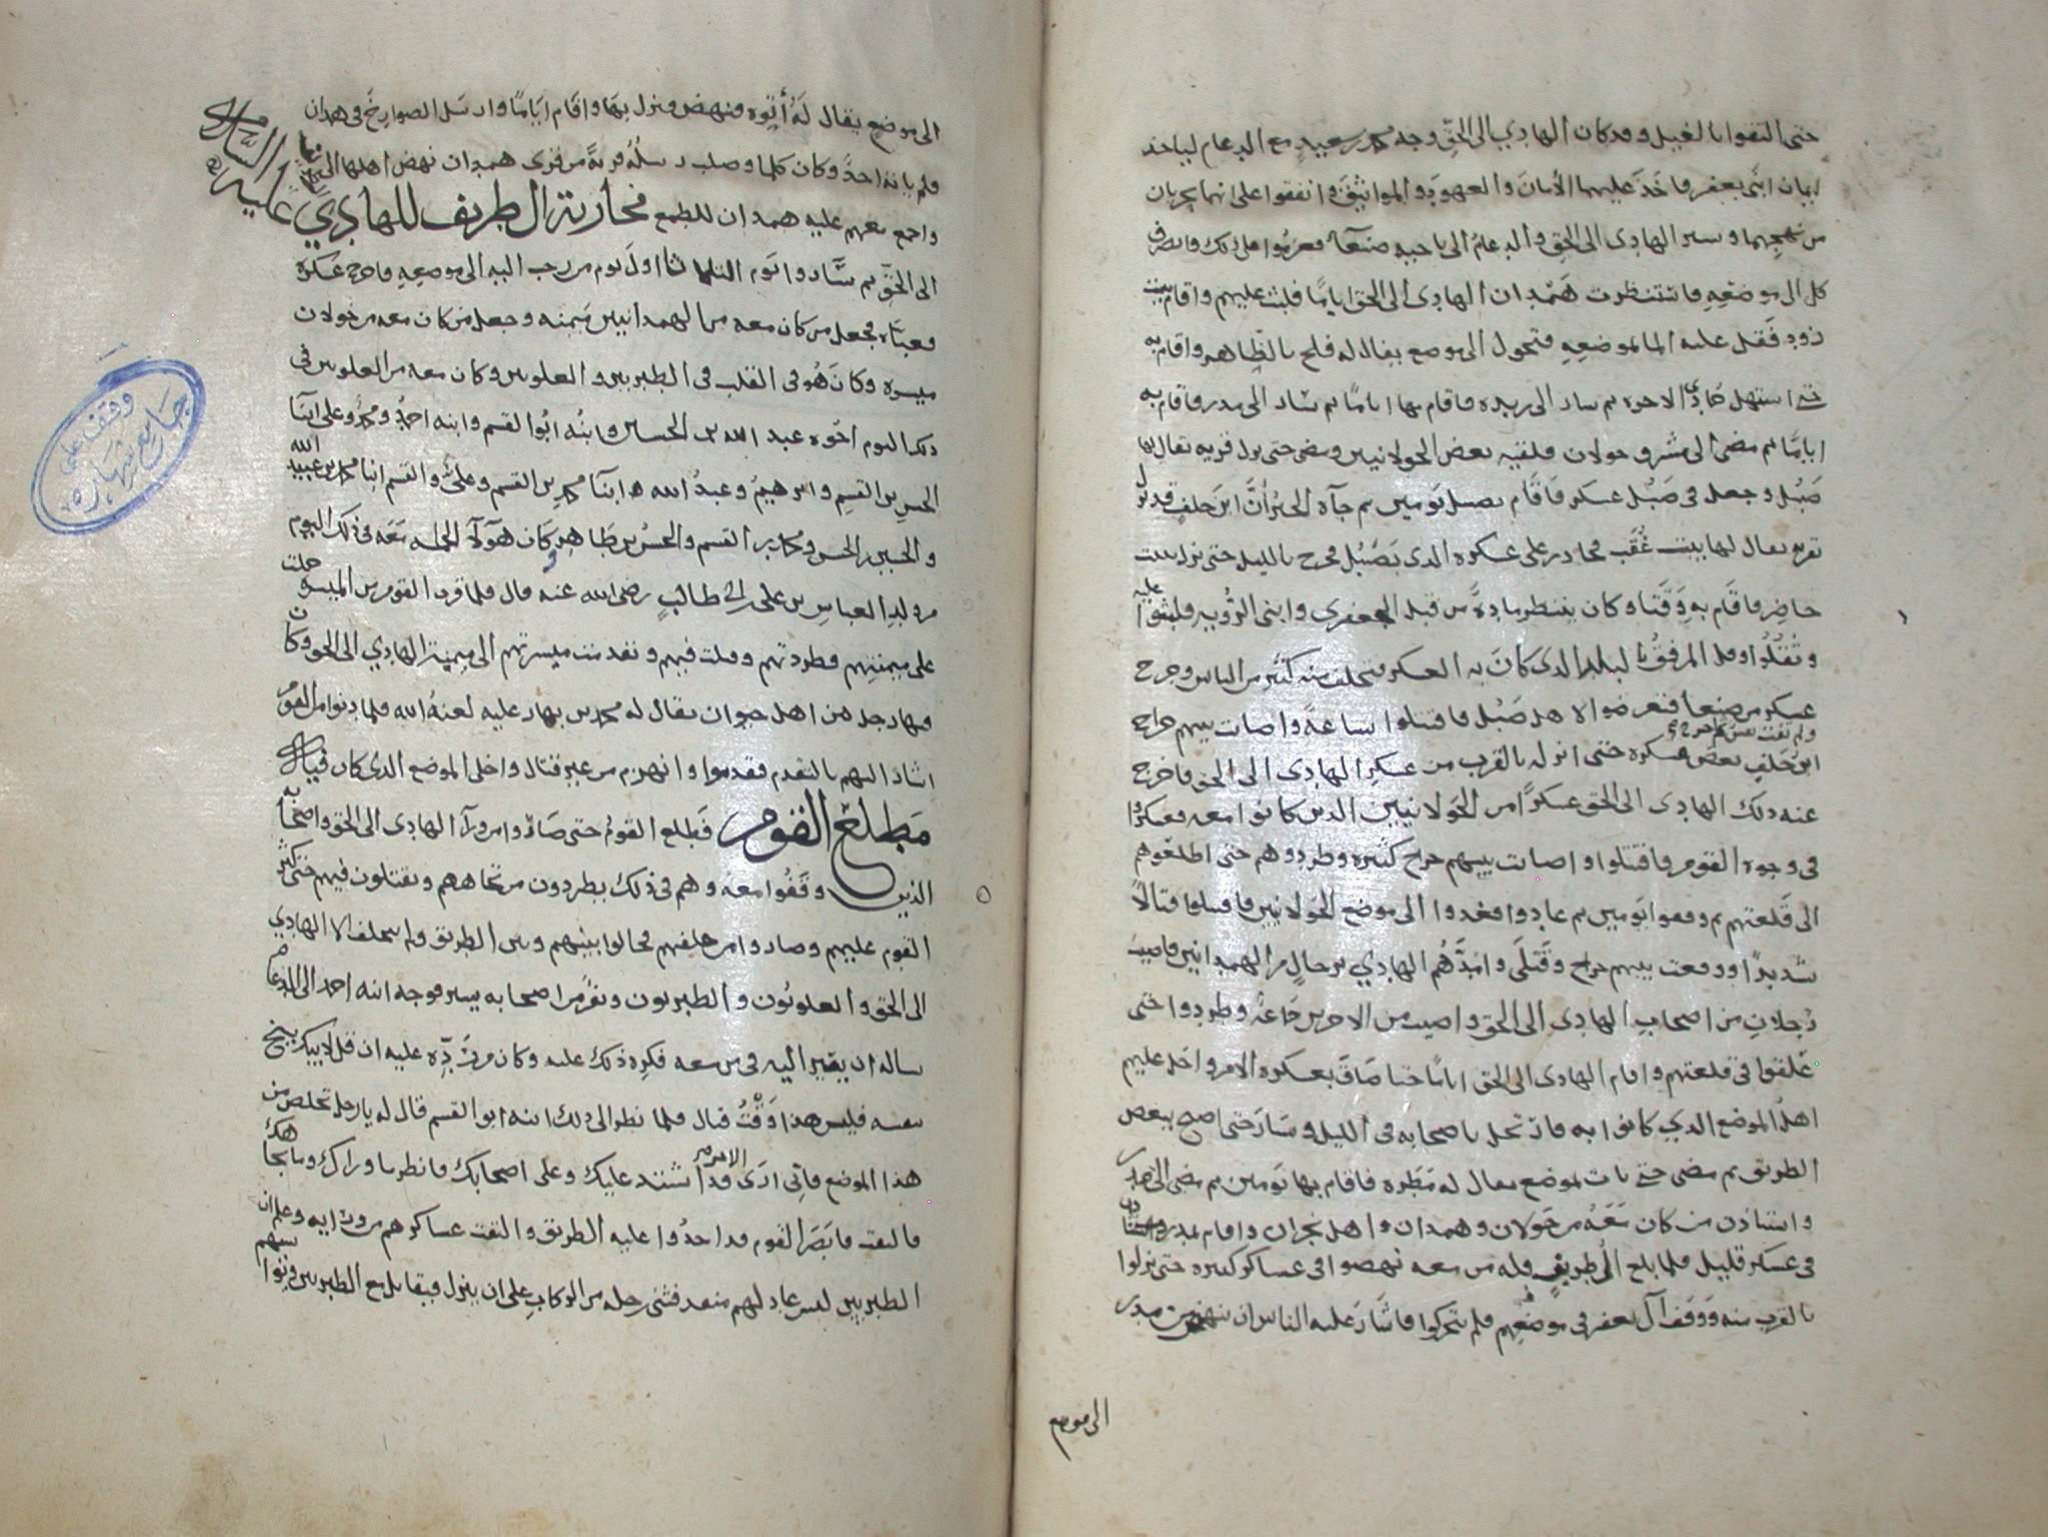 حتى التقوا بالغيل وقد كان الهادي الى الحق وجه محمد بن سعيد مع الدعام لياخذ
ايمان ابني يعفر فاخذ عليهما الأمان والعهود والمواثيق واتفقوا على انهما يخرجان
من نهجهما وسير الهادى الى الحق والدعام الى ناحيه صنعآ فعزموا على ذلك وانصرف
كل الى موضعه فانتظرت همدان الهادى الى الحق اياما فلبث عليهم واقام ببيت
زود فقل عليه الما لموضعه فتحول الى موضع يقال له فلح بالظاهر واقام به
حتى استهل جمادى الاخره ثم سار الى ريده فاقام بها اياما ثم سار الى مدر فاقام به
اياما ثم مضى الى مشرق خولان فلقيه بعض الخولانيين ومضى حتى نزل قريه يقال لها
صبل وجعل فى صبل عسكر فاقام بصبل يومين ثم جآه الخبر أن ابن خلف قد نزل
قريه يقال لها بيت عقب فحاذر على عسكره الذى بصبل فخرج بالليل حتى نزل بيت
حاضر فاقام به وقتا وكان ينتظر مادة من قبل الجعفري وابني الرويه فلبثوا عليه
وثقلوا وقل المرفق بالبلد الذى كان به العسكر فتخلف منه كثير من الناس وخرج
عسكر من صنعا فتعرضوا لاهل صبل فاقتتلوا ساعة واصابت بينهم جراح
ابن خلف بعض عسكره حتى انزله بالقرب من عسكر الهادى الى الحق فاخرج
عنه ذلك الهادى الى الحق عسكرا من الخولانيين الذين كانوا معه فعسكروا
فى وجوه القوم فاقتتلوا واصابت بينهم جراح كثيره وطردوهم حتى اطلعوهم
الى قلعتهم ثم وقفوا يومين ثم عادوا فغدوا الى موضع الخولانيين فاقتتلوا قتالا
شديدا ووقعت بينهم جراح وقتلى وامدهم الهادي برجال من الهمدانيين فاصيب
رجلان من اصحاب الهادى الى الحق واصيب من الاخرين جماعة وطردوا حتى
غلقوا فى قلعتهم واقام الهادى الى الحق اياما حتى ضاق بعسكره الامر واخذ عليهم
اهل الموضع الذي كانوا به فارتحل باصحابه فى الليل وسار حتى اصبح ببعض
الطريق ثم مضى حتى بات بموضع يقال له مطره فاقام بها يومين ثم مضى الى مدر
واستاذن من كان معه من خولان وهمدان واهل نجران واقام بمدر
فى عسكر قليل فلما بلغ ال طريف قله من معه نهضوا فى عساكر كثيره حتى نزلوا
بالقرب منه ووقف آل يعفر فى موضعهم فلم يتحركوا فاشار عليه الناس ان ينهض من مدر
الى موضع
الى موضع يقال له أتوه فنهض ونزل بها واقام اياما وارسل الصوارخ فى همدان
فلم ياته احد وكان كلما وصلت رسله قرية من قرى همدان نهض اهلها الى
واجمع معهم عليه همدان للطمع محاربة ال طريف للهادي عليه السلام
الى الحق ثم ساروا يوم الثلاثا اول يوم من رجب اليه الى موضعه فاخرج عسكره
فعباه فجعل من كان معه من الهمدانيين ميمنه وجعل من كان معه من خولان
ميسره وكان هو فى القلب فى الطبريين والعلويين وكان معه من العلويين فى
ذلك اليوم اخوه عبد الله بن الحسين وابنه ابو القسم وابنه احمد ومحمد وعلى ابنا
الحسن بن القسم وابرهيم وعبد الله ابنا محمد بن القسم وعلى والقسم ابنا محمد بن عبيد الله
والحسين بن الحسن ومحمد بن القسم والحسن بن طاهر وكان هولآ الجمله معه فى ذلك اليوم
من ولد العباس بن على بن ابى طالب رضى الله عنه قال فلما قرب القوم من الميسره حملت
على ميمنتهم فطردتهم وقتلت فيهم وتقدمت ميسرتهم الى ميمنة الهادي الى الحق وكان
فيها رجل من اهل خيوان يقال له محمد بن بهار عليه لعنة الله فلما دنوا من القوم
اشار اليهم بالتقدم فتقدموا وانهزم من غير قتال واخلى الموضع الذى كان فيه
مطلع القوم فطلع القوم حتى صاروا من ورآ الهادى الى الحق واصحابه
الذين وقفوا معه وهم فى ذلك يطردون من تجاههم ويقتلون فيهم حتى كثر
القوم عليهم وصاروا من خلفهم فحالوا بينهم وبين الطريق ولم يتخلف الا الهادي
الى الحق والعلويون والطبريون ونفر من اصحابه يسير فوجه ابنه احمد الى الدعام
ساله ان يغير اليه فى من معه فكره ذلك عليه وكان من رده عليه ان قل لابيك ينج
بنفسه فليس هذا وقت قتال فلما نظر الى ذلك ابنه ابو القسم قال له يا رجل تخلص من
هذا الموضع فاني ارى الامر قد اشتد عليك وعلى اصحابك فانظر ما وراك وما تجاهك
فالتفت فابصر القوم قد اخذوا عليه الطريق والتفت عساكرهم من ورايه وعلم ان
الطبريين ليس عاد لهم منعد فثنى رجله من الركاب على ان ينزل فيقاتل مع الطبريين
وقف على
جامع شهاره